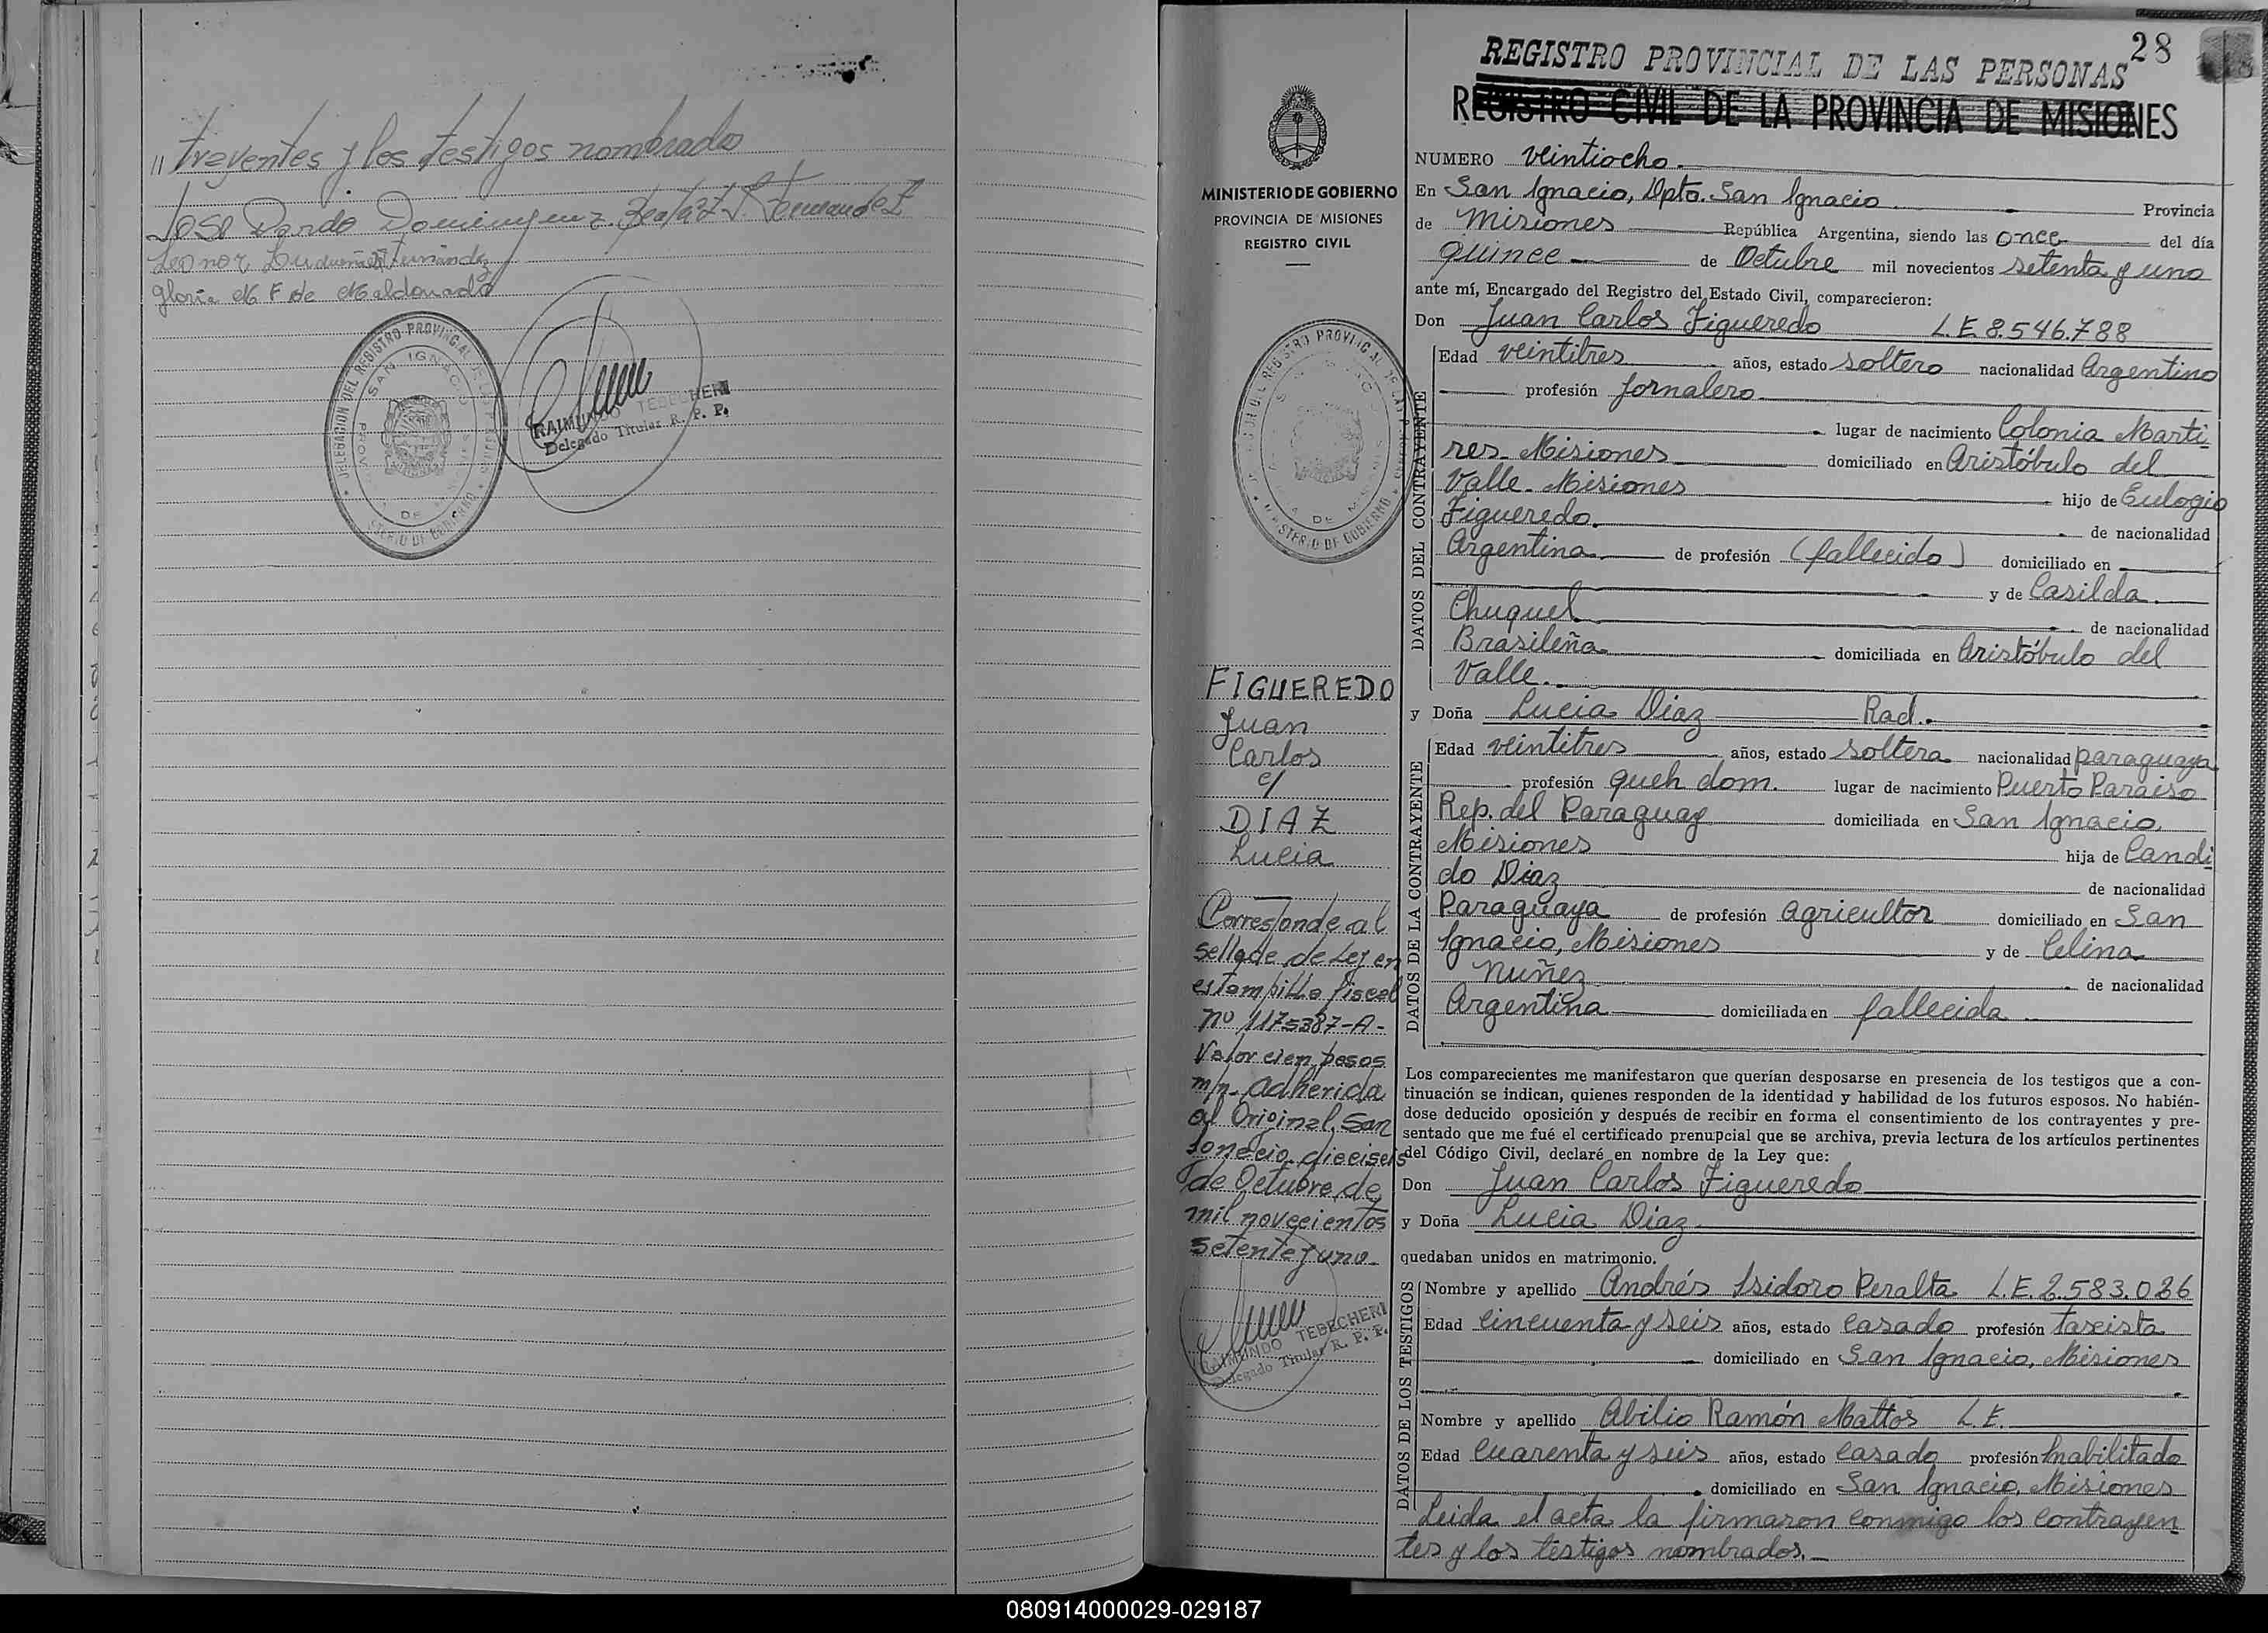 " trayentes y los testigos nombrados
José Dardo Dominguez. Beatriz Fernandez
Leonor Fernández
Gloria M F de Maldonado
DELEGACION DEL REGISTRO PROVINCIAL DE LAS PERSONAS
SAN IGNACIO
PROV. DE MISIONES
MINISTERIO DE GOBIERNO
RAIMUNDO TEBECHERI
Delegado Titular R. P. P.
28
REGISTRO PROVINCIAL DE LAS PERSONAS
REGISTRO CIVIL DE LA PROVINCIA DE MISIONES
MINISTERIO DE GOBIERNO
PROVINCIA DE MISIONES
REGISTRO CIVIL
FIGUEREDO
Juan
Carlos
c/
DIAZ
Lucia
Corresponde al
sellado de Ley en
estampilla fiscal
nº 1175387-A-
Valor cien pesos
m/n. adherida
al Original, San
Ignacio, dieciseis
de Octubre de
mil novecientos
setenta y uno.
RAIMUNDO TEBECHERI
Delegado Titular R. P. P.
NUMERO veintiocho.
En San Ignacio, Dpto. San Ignacio. Provincia
de Misiones República Argentina, siendo las once del día
quince de Octubre mil novecientos setenta y uno
ante mí, Encargado del Registro del Estado Civil, comparecieron:
Don Juan Carlos Figueredo L.E 8.546.788
DATOS DEL CONTRAYENTE
Edad veintitres años, estado soltero nacionalidad Argentino
profesión Jornalero
lugar de nacimiento Colonia Marti
res- Misiones domiciliado en Aristóbulo del
Valle- Misiones hijo de Eulogio
Figueredo. de nacionalidad
Argentina de profesión (fallecido) domiciliado en
y de Casilda
Chuquel de nacionalidad
Brasileña domiciliada en Aristóbulo del
Valle.
y Doña Lucia Diaz Rad.
DATOS DE LA CONTRAYENTE
Edad veintitres años, estado soltera nacionalidad paraguaya
profesión queh dom. lugar de nacimiento Puerto Paraiso
Rep. del Paraguay domiciliada en San Ignacio,
Misiones hija de Candi
do Diaz de nacionalidad
Paraguaya de profesión Agricultor domiciliado en San
Ignacio, Misiones y de Celina
Nuñez de nacionalidad
Argentina domiciliada en fallecida
Los comparecientes me manifestaron que querían desposarse en presencia de los testigos que a con-
tinuación se indican, quienes responden de la identidad y habilidad de los futuros esposos. No habién-
dose deducido oposición y después de recibir en forma el consentimiento de los contrayentes y pre-
sentado que me fué el certificado prenupcial que se archiva, previa lectura de los artículos pertinentes
del Código Civil, declaré en nombre de la Ley que:
Don Juan Carlos Figueredo
y Doña Lucia Diaz
quedaban unidos en matrimonio.
DATOS DE LOS TESTIGOS
Nombre y apellido Andrés Isidoro Peralta L.E. 2.583.026
Edad cincuenta y seis años, estado casado profesión taxista
domiciliado en San Ignacio, Misiones
Nombre y apellido Abilio Ramón Mattos L.E.
Edad cuarenta y seis años, estado casado profesión Inabilitado
domiciliado en San Ignacio, Misiones
Leida el acta la firmaron conmigo los contrayen
tes y los testigos nombrados.
080914000029-029187